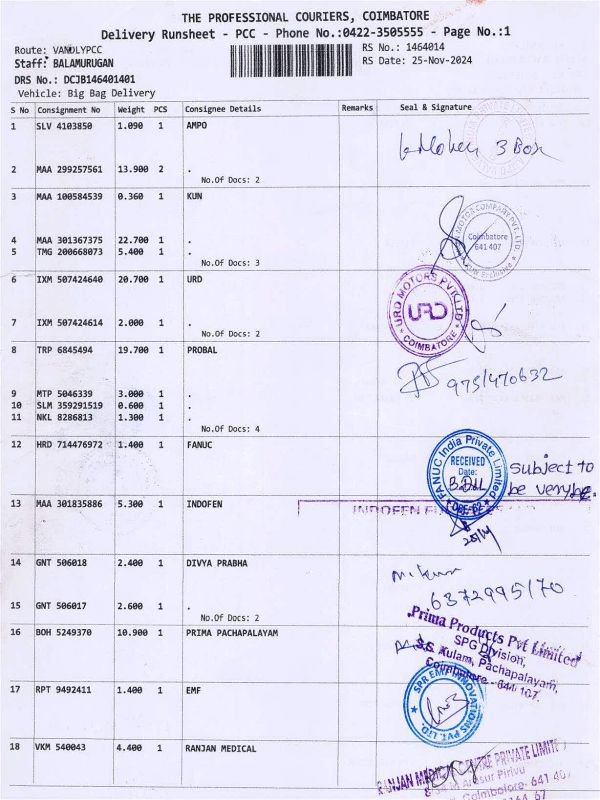 THE PROFESSIONAL COURIERS, COIMBATORE
Delivery Runsheet - PCC - Phone No.:0422-3505555 - Page No.:1
Route: VANDLYPCC
RS No.: 1464014
Staff: BALAMURUGAN
RS Date: 25-Nov-2024
DRS No.: DCJB146401401
Vehicle: Big Bag Delivery
S No Consignment No Weight PCS Consignee Details Remarks Seal & Signature
1 SLV 4103850 1.090 1 AMPO
3 Box
2 MAA 299257561 13.900 2 .
No.Of Docs: 2
3 MAA 100584539 0.360 1 KUN
MOTOR COMPANY PVT. LTD.
Coimbatore
641 407
4 MAA 301367375 22.700 1 .
5 TMG 200668073 5.400 1 .
No.Of Docs: 3
6 IXM 507424640 20.700 1 URD
URD MOTORS PVT.LTD
URD
COIMBATORE
7 IXM 507424614 2.000 1 .
No.Of Docs: 2
8 TRP 6845494 19.700 1 PROBAL
975/470632
9 MTP 5046339 3.000 1 .
10 SLM 359291519 0.600 1 .
11 NKL 8286813 1.300 1 .
No.Of Docs: 4
12 HRD 714476972 1.400 1 FANUC
FANUC India Private Limited
RECEIVED
Date:
Subject to
be
13 MAA 301835886 5.300 1 INDOFEN
INDOFEN
14 GNT 506018 2.400 1 DIVYA PRABHA
6372995170
15 GNT 506017 2.600 1 .
No.Of Docs: 2
16 BOH 5249370 10.900 1 PRIMA PACHAPALAYAM
Prima Products Pvt Limited
SPG Division,
S.S. Kulam, Pachapalayam,
Coimbatore - 641 107.
17 RPT 9492411 1.400 1 EMF
SPR EMF INNOVATIONS PVT. LTD.
18 VKM 540043 4.400 1 RANJAN MEDICAL
RANJAN PRIVATE LIMITE
Coimbatore- 641 40